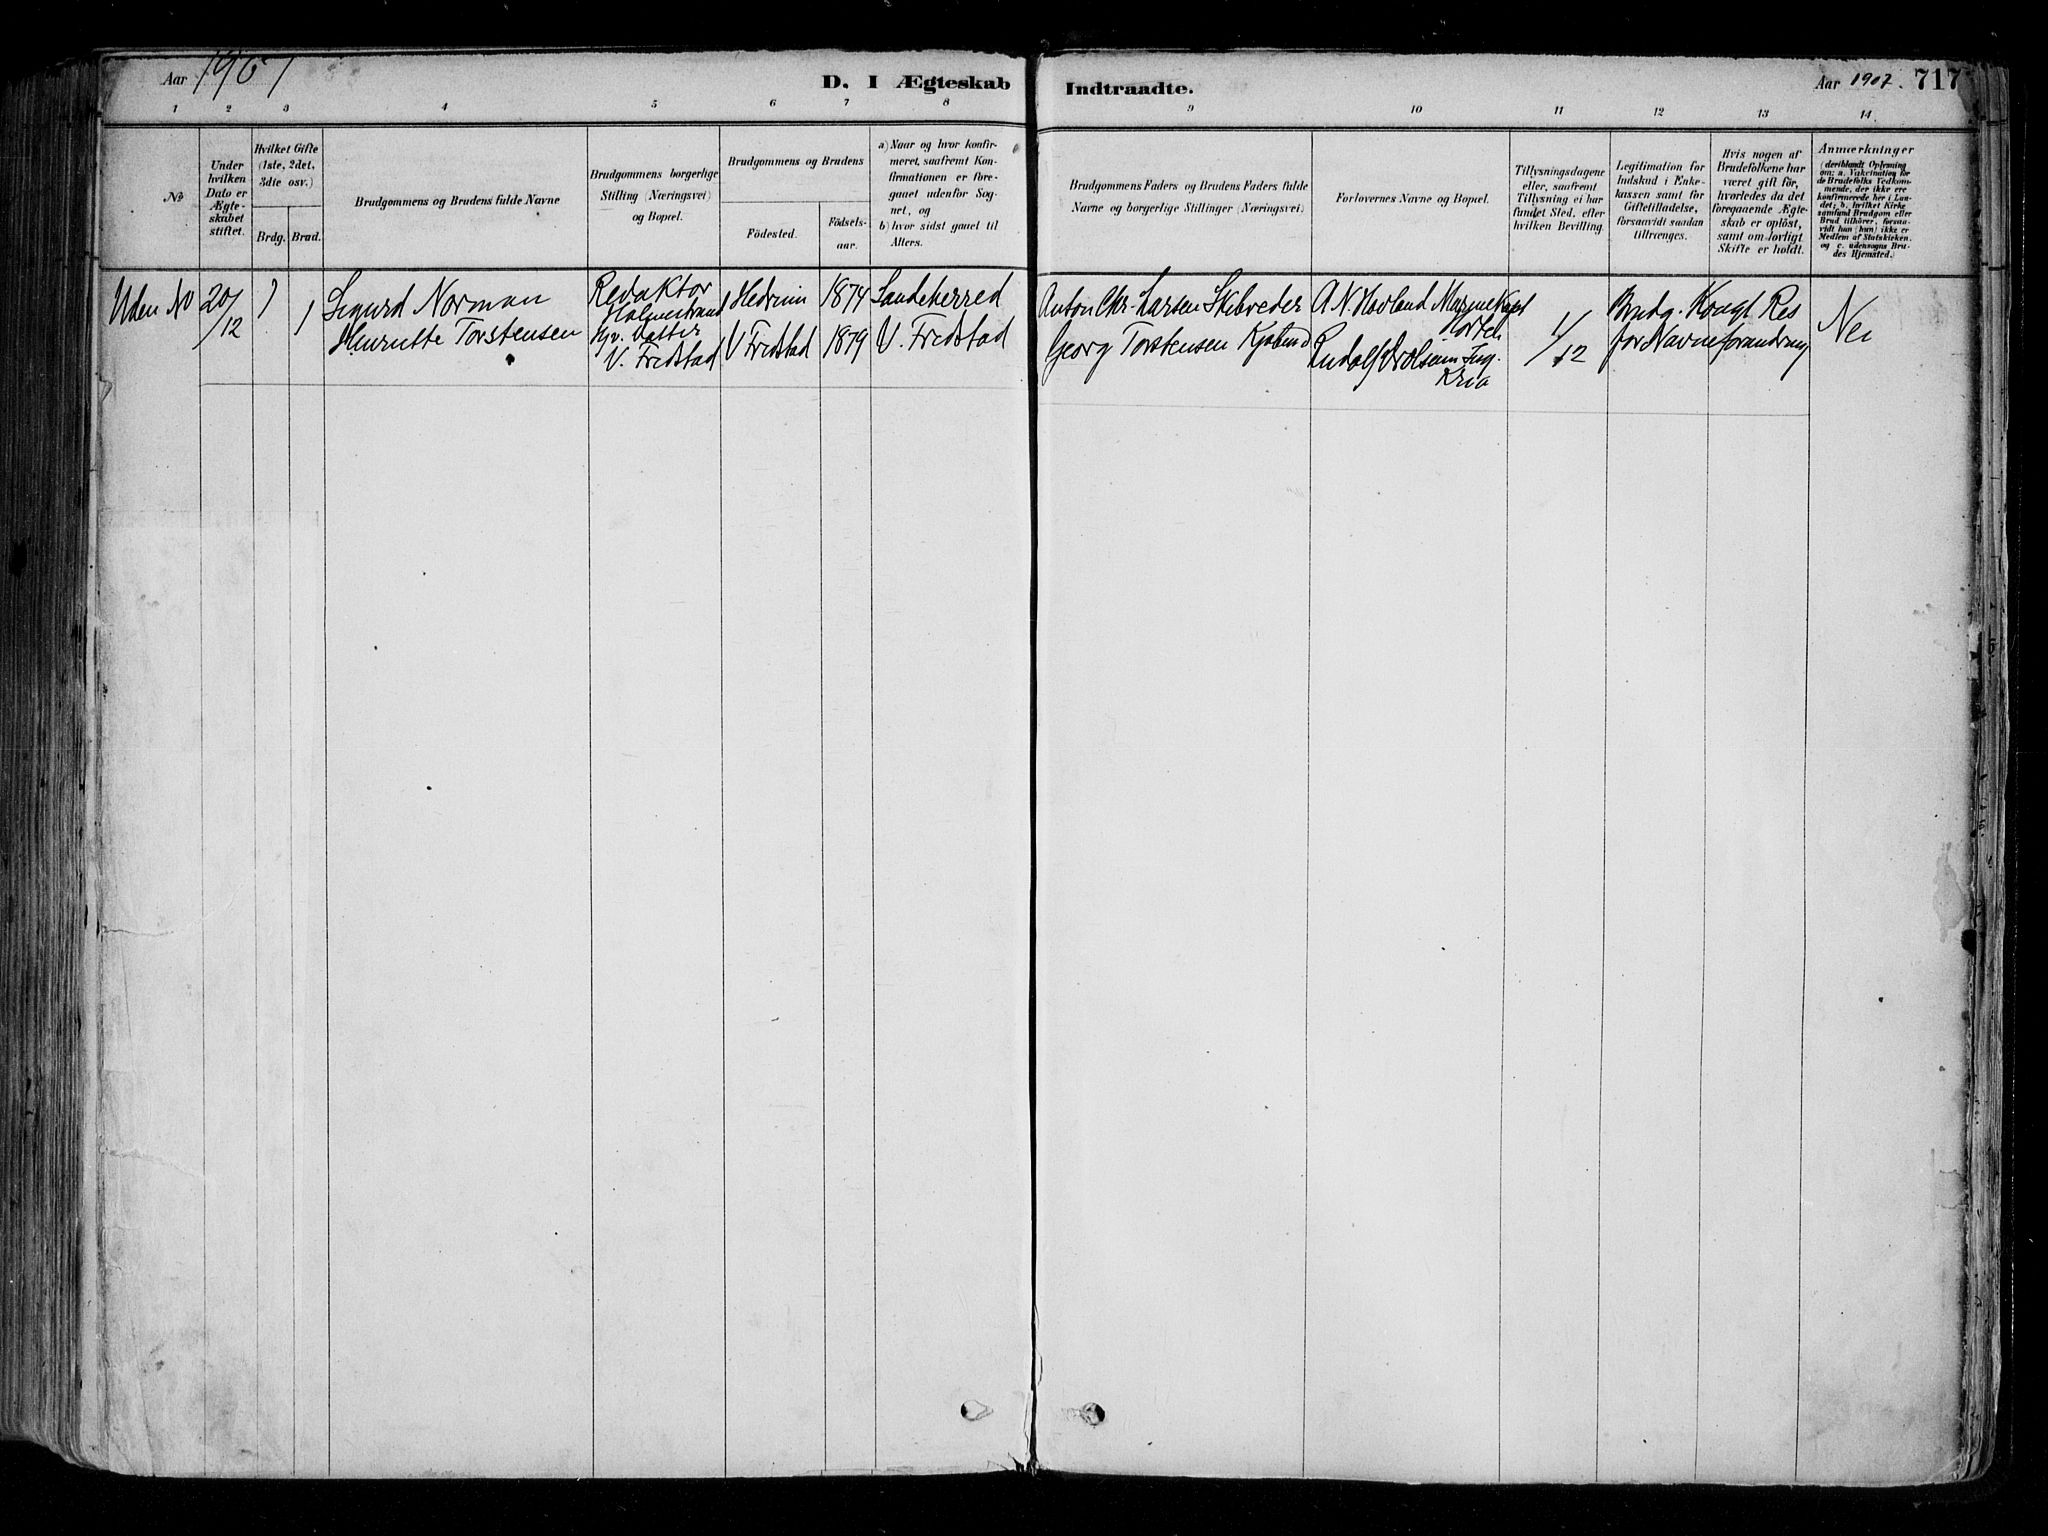 Aar 1907
D. I Ægteskab
Indtraadte.
Aar 1907. 717
1 2 3 4 5 6 7 8 9 10 11 12 13 14.
No
Under
hvilken
Dato er
Ægte-
skabet
stiftet.
Hvilket Gifte
(1ste, 2det,
3die osv.)
Brdg. Brud.
Brudgommens og Brudens fulde Navne
Brudgommens borgerlige
Stilling (Næringsvei)
og Bopæl.
Brudgommens og Brudens
Födested.
Födsels-
aar.
a) Naar og hvor konfir-
meret, saafremt Kon-
firmationen er fore-
gaaet udenfor Sog-
net, og
b) hvor sidst gaaet til
Alters.
Brudgommens Faders og Brudens Faders fulde
Navne og borgerlige Stillinger (Næringsvei)
Forlovernes Navne og Bopæl.
Tillysningsdagene
eller, saafremt
Tillysning ei har
fundet Sted, efter
hvilken Bevilling.
Legitimation for
Indskud i Enke-
kassen samt for
Giftetilladelse,
forsaavidt saadan
tiltrænges.
Hvis nogen af
Brudefolkene har
været gift för,
hvorledes da det
foregaaende Ægte-
skab er oplöst,
samt om lovligt
Skifte er holdt.
Anmærkninger
(deriblandt Oplysning
om: a. Vakcination for
de Brudefolks Vedkom-
mende, der ikke ere
konfirmerede her i Lan-
det; b. hvilket Kirke-
samfund Brudgom eller
Brud tilhører, forsaa-
vidt han (hun) ikke er
Medlem af Statskirken,
og c. udensogns Bru-
des Hjemsted.)
Uden No 20/12 1 1
Sigurd Norman
Henriette Torstensen
Redaktør
Holmestrand
Hjv. Datter
V. Fredstad
Hedrum 1874 Sandeherred
V Fredstad 1879 V. Fredstad
Anton Chr. Larsen
Georg Torstensen Kjøbmd
A N Hovland Marinekapt
Horten
Rudolf Ing.
Kria
1/12
Brudg. Kongl Res
for Navneforandring
Nei